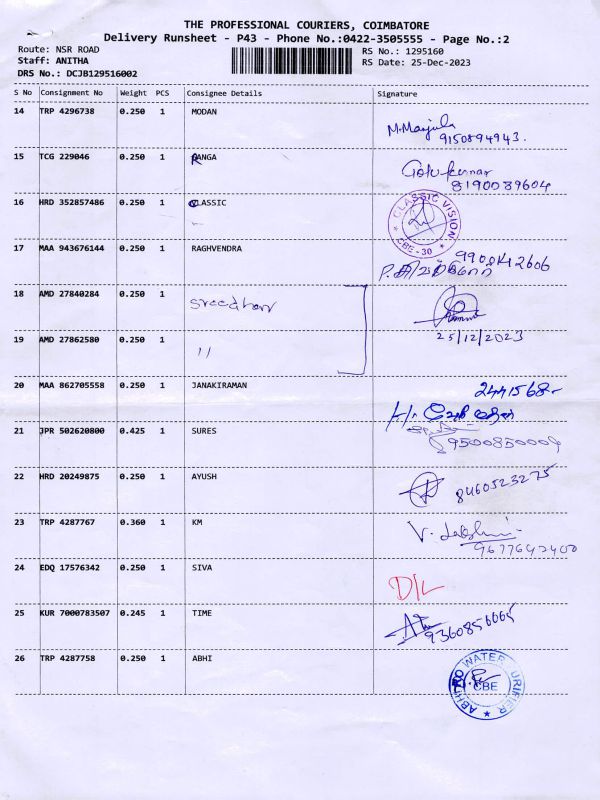 THE PROFESSIONAL COURIERS, COIMBATORE
Delivery Runsheet - P43 - Phone No.:0422-3505555 - Page No.:2
Route: NSR ROAD RS No.: 1295160
Staff: ANITHA RS Date: 25-Dec-2023
DRS No.: DCJB129516002
S No Consignment No Weight PCS Consignee Details Signature
14 TRP 4296738 0.250 1 MODAN
M.Manjula
9150894943.
15 TCG 229046 0.250 1 RANGA
Gokukumar
8190089604
16 HRD 352857486 0.250 1 CLASSIC
CLASSIC VISION
CBE-30
17 MAA 943676144 0.250 1 RAGHVENDRA
18 AMD 27840284 0.250 1
Sreedharr
25/12/2023
19 AMD 27862580 0.250 1 11
20 MAA 862705558 0.250 1 JANAKIRAMAN
2441568-
21 JPR 502620800 0.425 1 SURES
22 HRD 20249875 0.250 1 AYUSH
8460523275
23 TRP 4287767 0.360 1 KM
V. Lakshmi
9677642400
24 EDQ 17576342 0.250 1 SIVA
D/L
25 KUR 7000783507 0.245 1 TIME
9360856665
26 TRP 4287758 0.250 1 ABHI
WATER
CBE